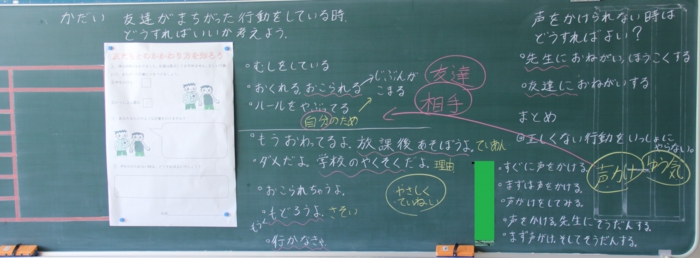 かだい 友達がまちがった行動をしている時、
どうすればいいか考えよう。
・むしをしている
・おくれる、おこられる
・ルールをやぶってる
自分のため
じぶんが
こまる
友達
相手
・もうおわってるよ。放課後あそぼうよ。ていあん
・ダメだよ。学校のやくそくだよ。理由
・おこられちゃうよ。
・もどろうよ。さそい
・行かなきゃ。
やさしく
・ていねい
声をかけられない時は
どうすればよい？
・先生におねがい、ほうこくする
・友達におねがいする
まとめ
正しくない行動をいっしょに
やらない。
声かけ
ゆう気
・すぐに声をかける。
・まずは声をかける。
・声がけをしてみる。
・声をかける、先生にそうだんする。
・まず声がけ、そしてそうだんする。